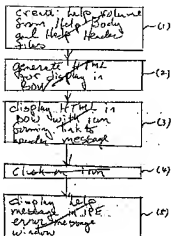 create help volume
from Help Body
and Help Header
files
(1)
generate HTML
for display in
(2)
display HTML in
with icon
forming link to
message
(3)
click on icon
(4)
display help
message in IPE
error message
window
(5)